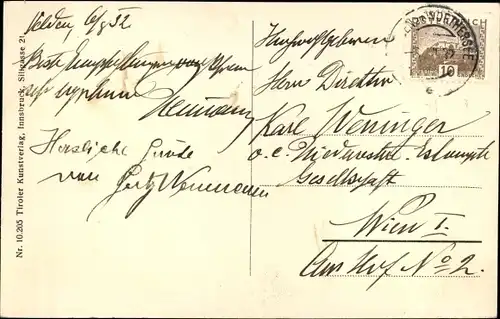 Velden, 6/8 32
Beste Empfehlungen von Ihrem
Neumann
Herzliche Grüße
von Neumann
Nr. 10.205 Tiroler Kunstverlag, Innsbruck, Sillgasse 21
Hochwohlgeboren
Herrn Direktor
Karl Weninger
Gesellschaft
Wien I.
Am Hof No 2.
10